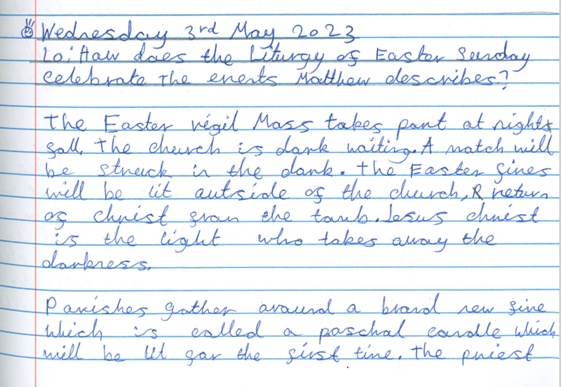 Wednesday 3rd May 2023
Lo: How does the Liturgy of Easter Sunday
celebrate the events Matthew describes?
The Easter vigil Mass takes part at nights
fall. The church is dark waiting. A match will
be struck in the dark. The Easter fires
will be lit outside of the church, R return
of christ from the tomb. Jesus christ
is the light who takes away the
darkness.
Parishes gather around a brand new fire
which is called a paschal candle which
will be lit for the first time. The priest